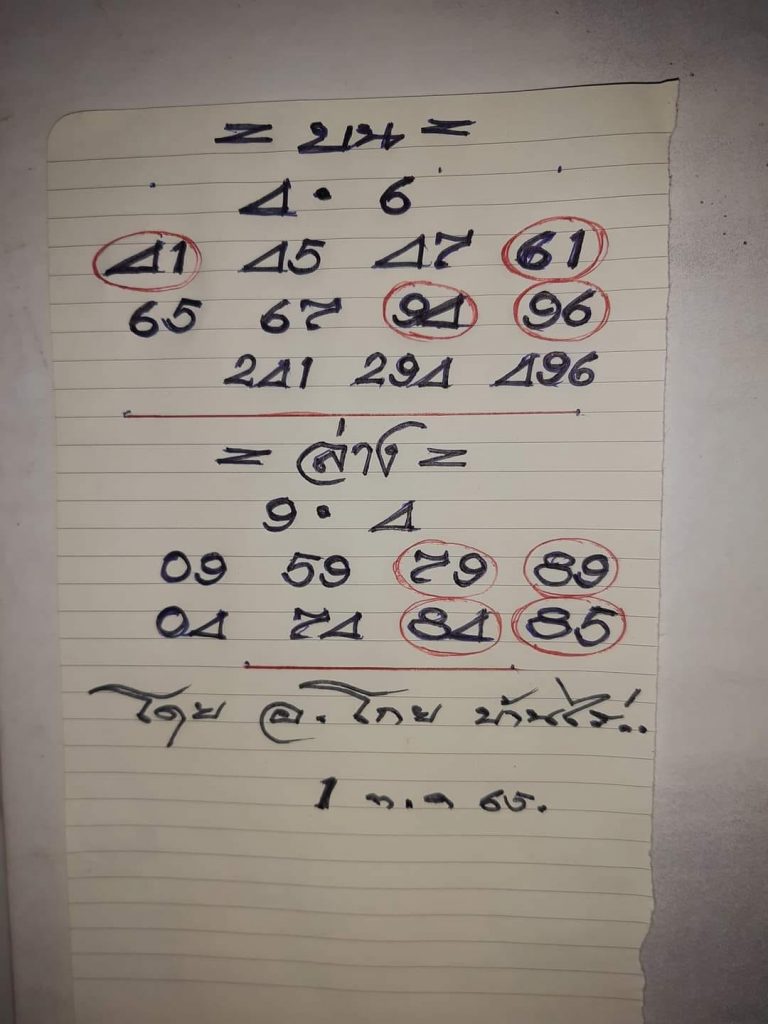 = บน =
4 • 6
41 45 47 61
65 67 94 96
241 294 496
= ล่าง =
9 • 4
09 59 79 89
04 74 84 85
โดย อ. โกย บ้านไร่..
1 ก.ค 65.